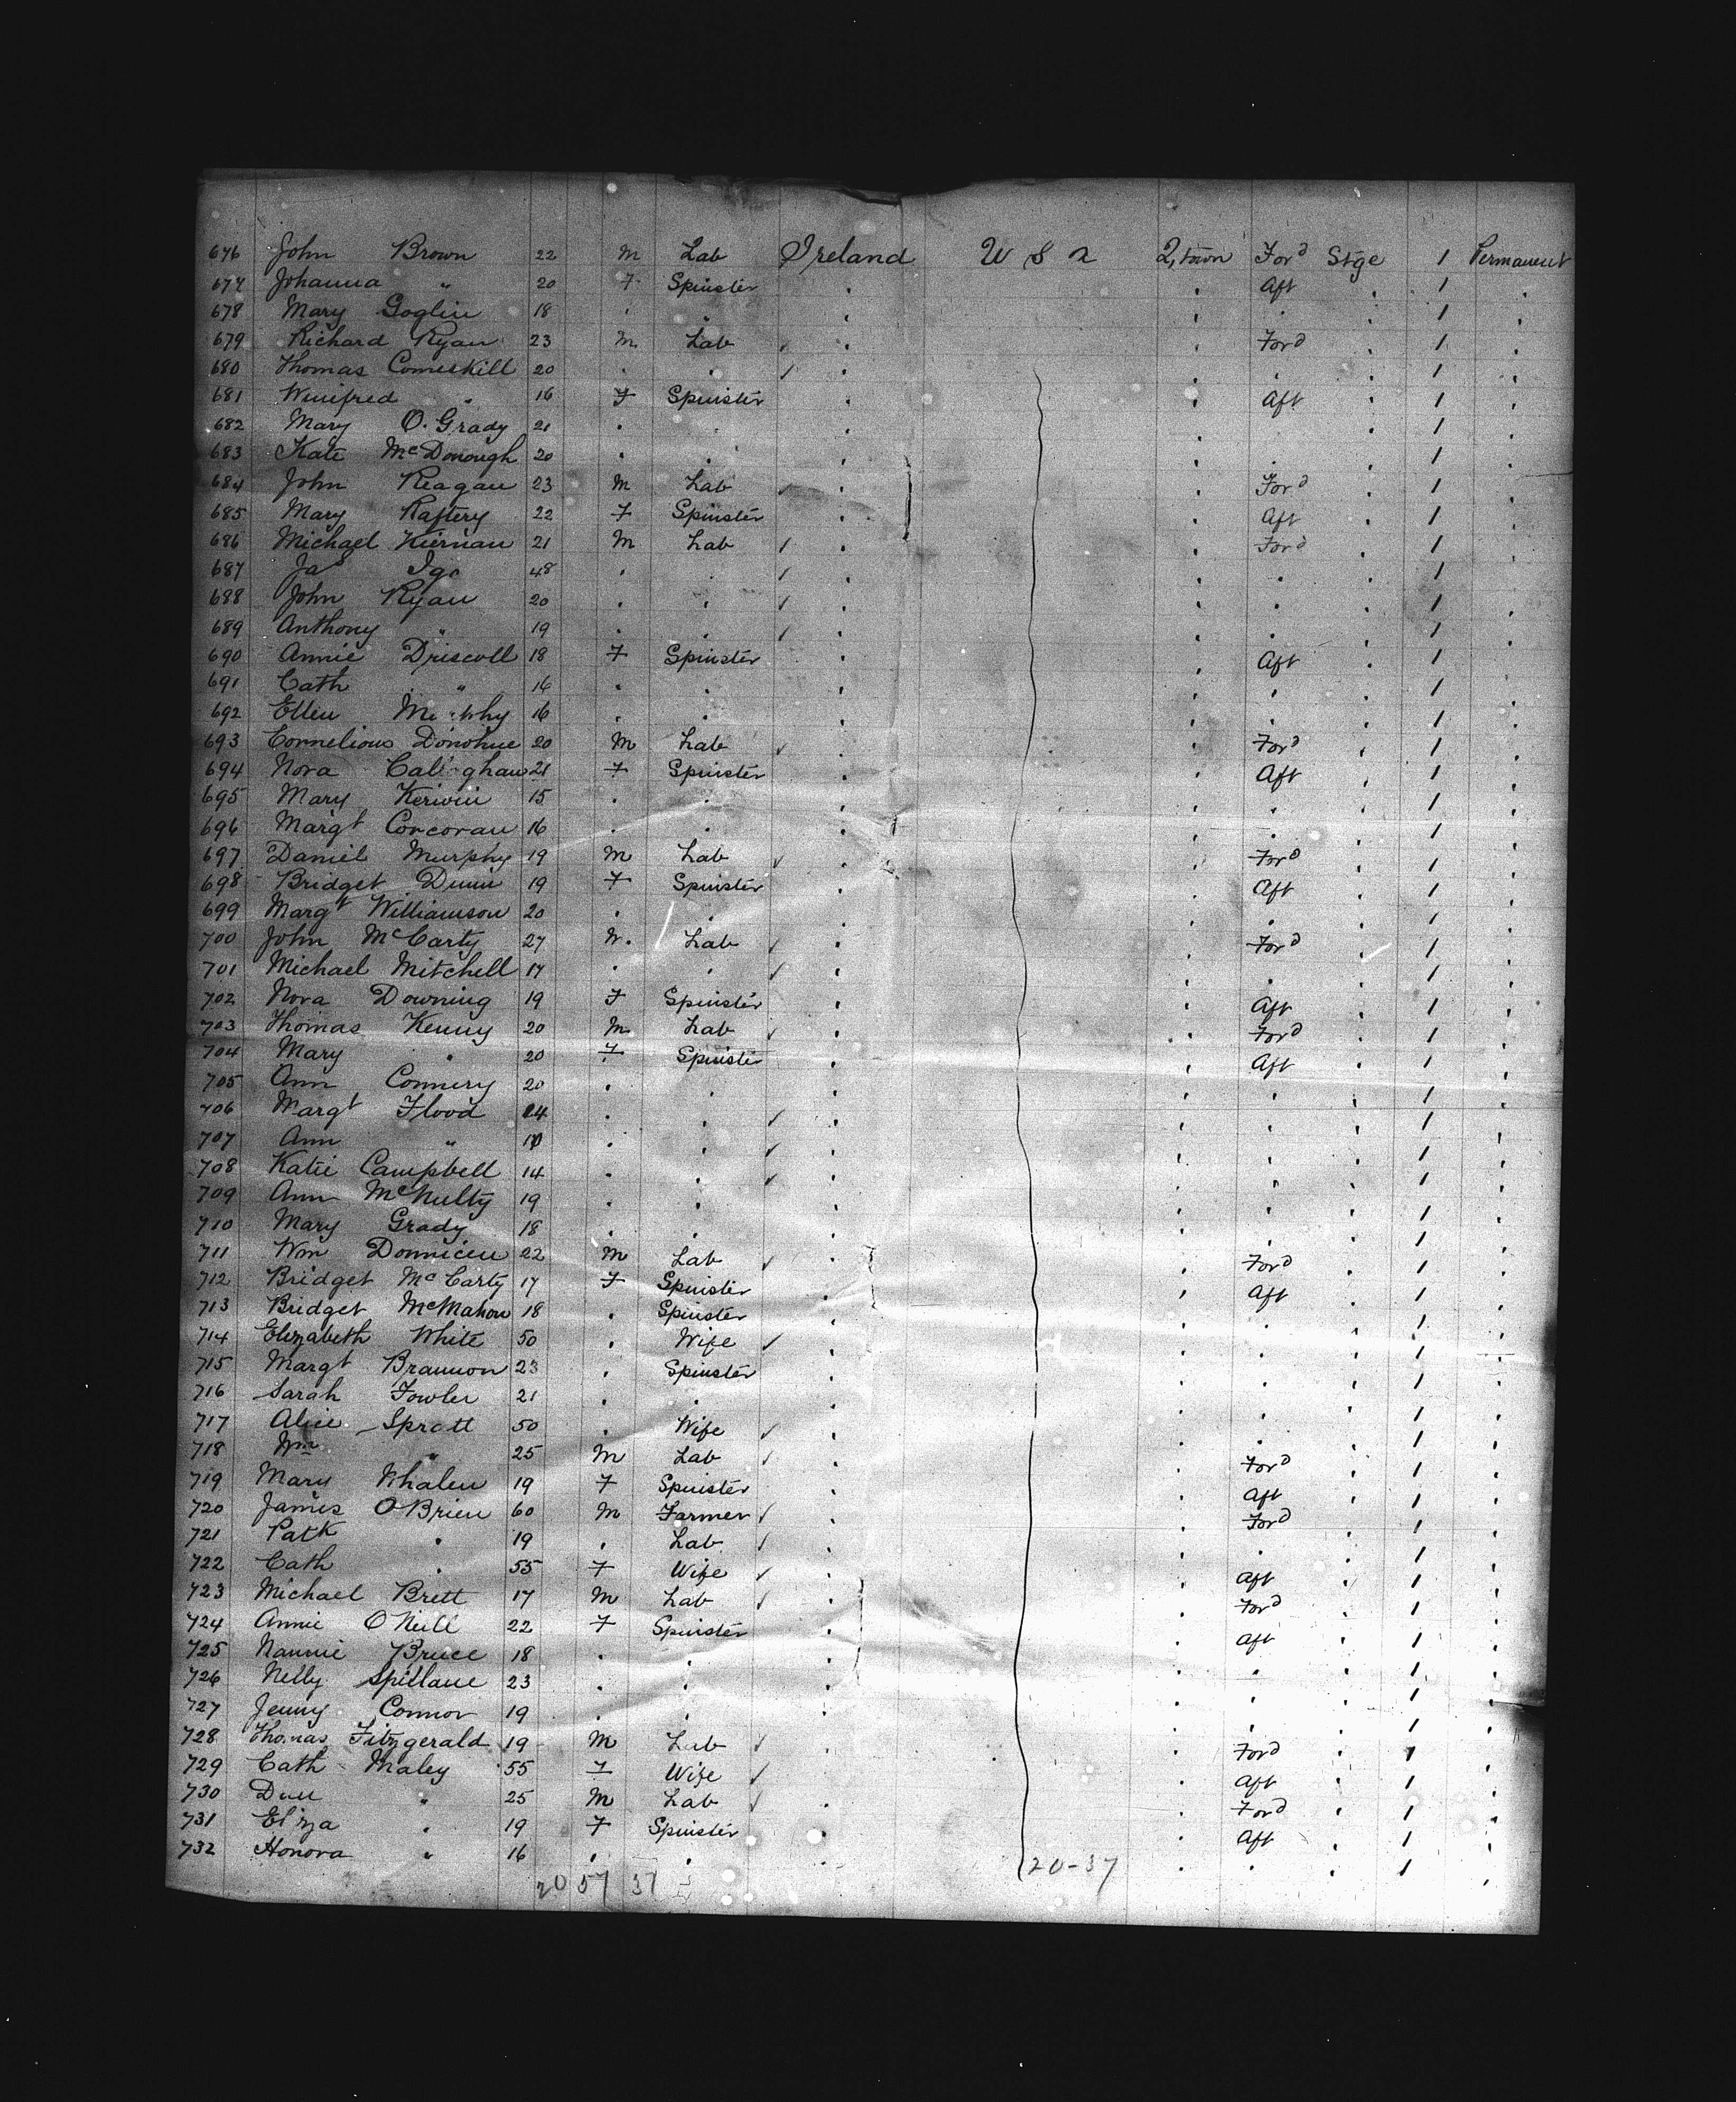 676 John Brown 22 M Lab Ireland U S A Q,town For^d Stge 1 Permanent
677 Johanna " 20 F Spinster . . Aft . 1 .
678 Mary Goglin 18 . . . . . . 1 .
679 Richard Ryan 23 M Lab . . For^d . 1 .
680 Thomas Comeskill 20 . . . . . . 1 .
681 Winifred " 16 F Spinster . . Aft . 1 .
682 Mary O. Grady 21 . . . . . . 1 .
683 Kate McDonough 20 . . . . . . 1 .
684 John Reagan 23 M Lab . . For^d . 1 .
685 Mary Raftery 22 F Spinster . . Aft . 1 .
686 Michael Kiernan 21 M Lab . . For^d . 1 .
687 Jas Igo 48 . . . . . . 1 .
688 John Ryan 20 . . . . . . 1 .
689 Anthony " 19 . . . . . . 1 .
690 Annie Driscoll 18 F Spinster . . Aft . 1 .
691 Cath " 16 . . . . . . 1 .
692 Ellen Murphy 16 . . . . . . 1 .
693 Cornelious Donohue 20 M Lab . . For^d . 1 .
694 Nora Callaghan 21 F Spinster . . Aft . 1 .
695 Mary Kerwin 15 . . . . . . 1 .
696 Margt Corcoran 16 . . . . . . 1 .
697 Daniel Murphy 19 M Lab . . For^d . 1 .
698 Bridget Dunn 19 F Spinster . . Aft . 1 .
699 Margt Williamson 20 . . . . . . 1 .
700 John McCarty 27 M. Lab . . For^d . 1 .
701 Michael Mitchell 17 . . . . . . 1 .
702 Nora Downing 19 F Spinster . . Aft . 1 .
703 Thomas Kenny 20 M Lab . . For^d . 1 .
704 Mary " 20 F Spinster . . Aft . 1 .
705 Ann Connery 20 . . . . . . 1 .
706 Margt Flood 14 . . . . . . 1 .
707 Ann " . . . . . . 1 .
708 Katie Campbell 14 . . . . . . 1 .
709 Ann McNulty 19 . . . . . . 1 .
710 Mary Grady 18 . . . . . . 1 .
711 Wm 22 M Lab . . For^d . 1 .
712 Bridget McCarty 17 F Spinster . . Aft . 1 .
713 Bridget McMahon 18 . Spinster . . . . 1 .
714 Elizabeth White 50 . Wife . . . . 1 .
715 Margt Brannon 23 . Spinster . . . . 1 .
716 Sarah Fowler 21 . . . . . . 1 .
717 Alice Sprott 50 . Wife . . . . 1 .
718 Wm " 25 M Lab . . For^d . 1 .
719 Mary Whalen 19 F Spinster . . Aft . 1 .
720 James O'Brien 60 M Farmer . . For^d . 1 .
721 Patk " 19 . Lab . . . . 1 .
722 Cath " 55 F Wife . . Aft . 1 .
723 Michael Brett 17 M Lab . . For^d . 1 .
724 Annie O'Neill 22 F Spinster . . Aft . 1 .
725 Nannie Bruce 18 . . . . . . 1 .
726 Nelly Spillane 23 . . . . . . 1 .
727 Jenny Connor 19 . . . . . . 1 .
728 Thomas Fitzgerald 19 M Lab . . For^d . 1 .
729 Cath Maley 55 F Wife . . Aft . 1 .
730 Dan " 25 M Lab . . For^d . 1 .
731 Eliza " 19 F Spinster . . Aft . 1 .
732 Honora " 16 . . . . . . 1 .
20 57 37 20-37